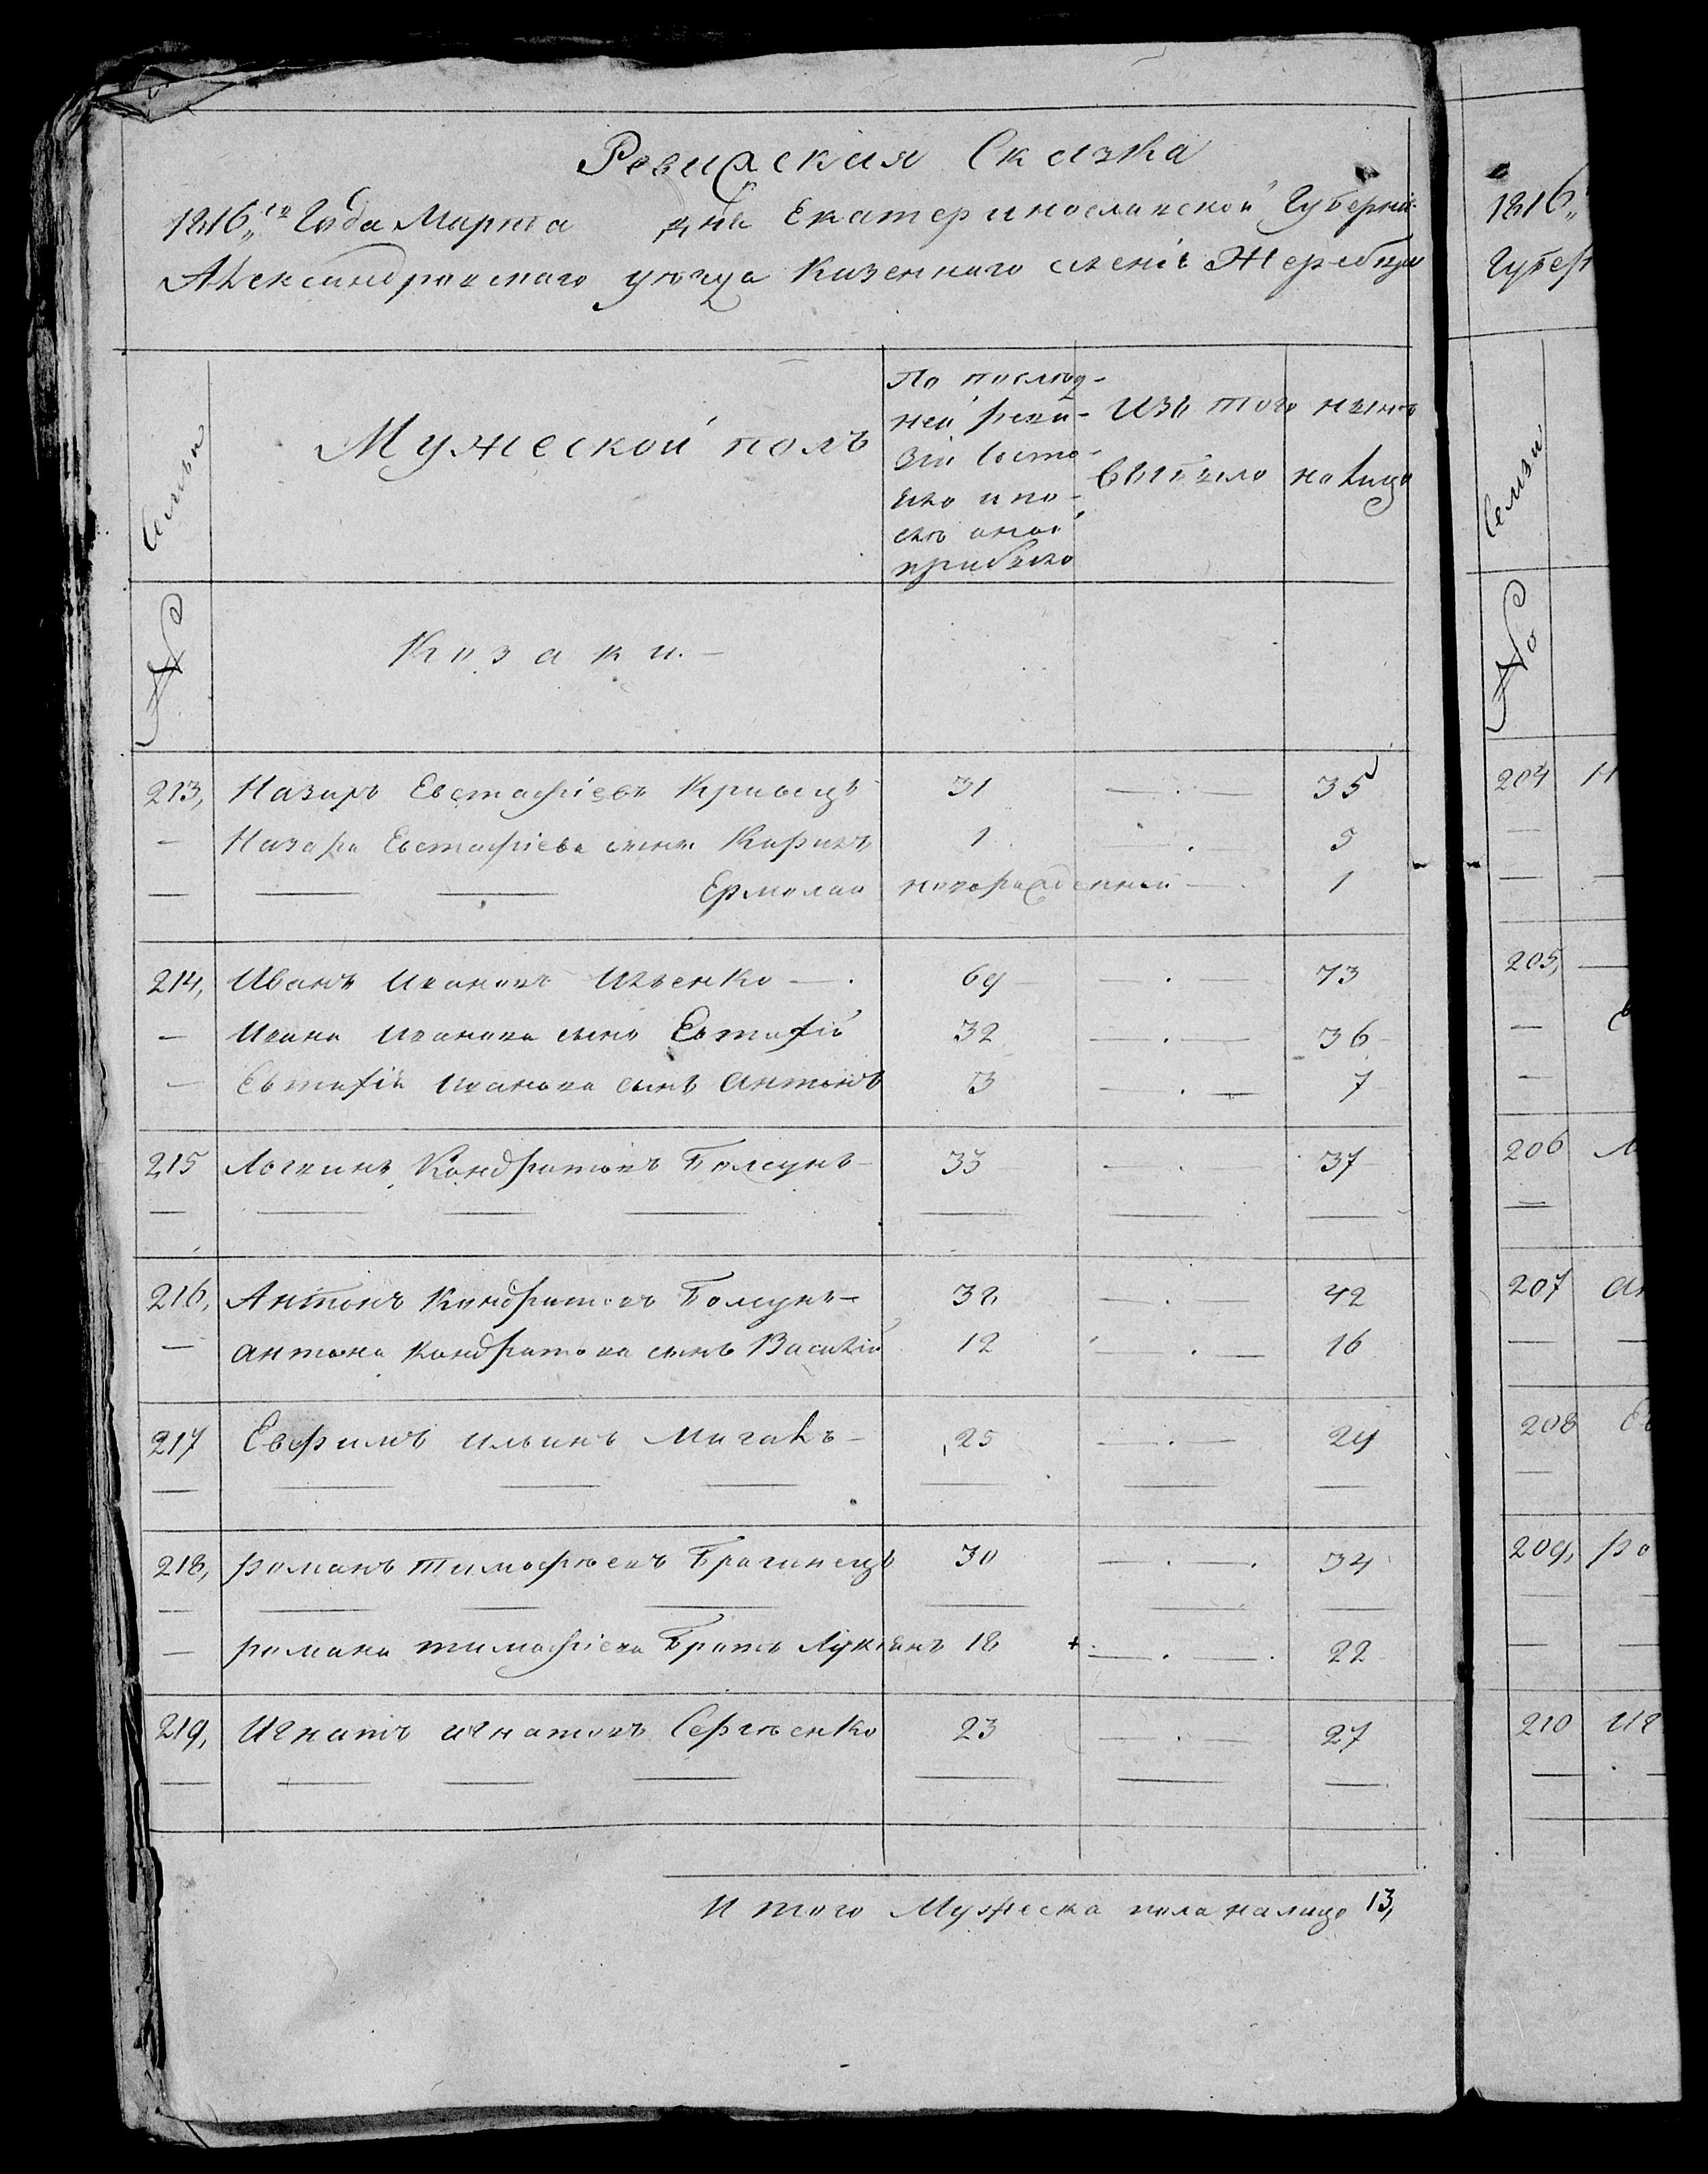 Ревизская Сказка
1816го Года Марта дня Екатеринославской Губернии
Александровского уезда Казенного селенія Жеребца
Семьи
Мужеской полъ
По послѣд-
ней реви-
зіи состо-
яло и по-
слѣ оной
прибыло
Изъ того
выбыло
нынѣ
налицо
№
Козаки.
213, Назаръ Евстафіевъ Кривецъ 31 — . — 35
— Назара Евстафіева сынъ Карпъ 1 . 5
— — — Ермолай новорожденной — 1
214, Иванъ Ивановъ Ильенко — . 69 — . — 73
— Ивана Иванова сынъ Евтафій 32 — . — 36
— Евтафія Иванова сынъ Антонъ 3 — . — 7
215 Логвинъ Кондратовъ Болсунъ 33 — . — 37
216, Антонъ Кондратовъ Болсунъ 38 — . — 42
— Антона Кондратова сынъ Василій 12 — . — 16
217 Евфимъ Ильинъ Мигаль 25 — . — 29
218, Романъ Тимофѣевъ Брагинецъ 30 — . 34
— Романа Тимофіева Братъ Лукіянъ 18 + — . — 22
219, Игнатъ Игнатовъ Сергѣенко 23 — . — 27
Итого Мужеска пола налицо 13,
1816
Губер
Семьи
№
204 Н
205,
206
207 Ан
208 Ев
209, Ро
210 Иг